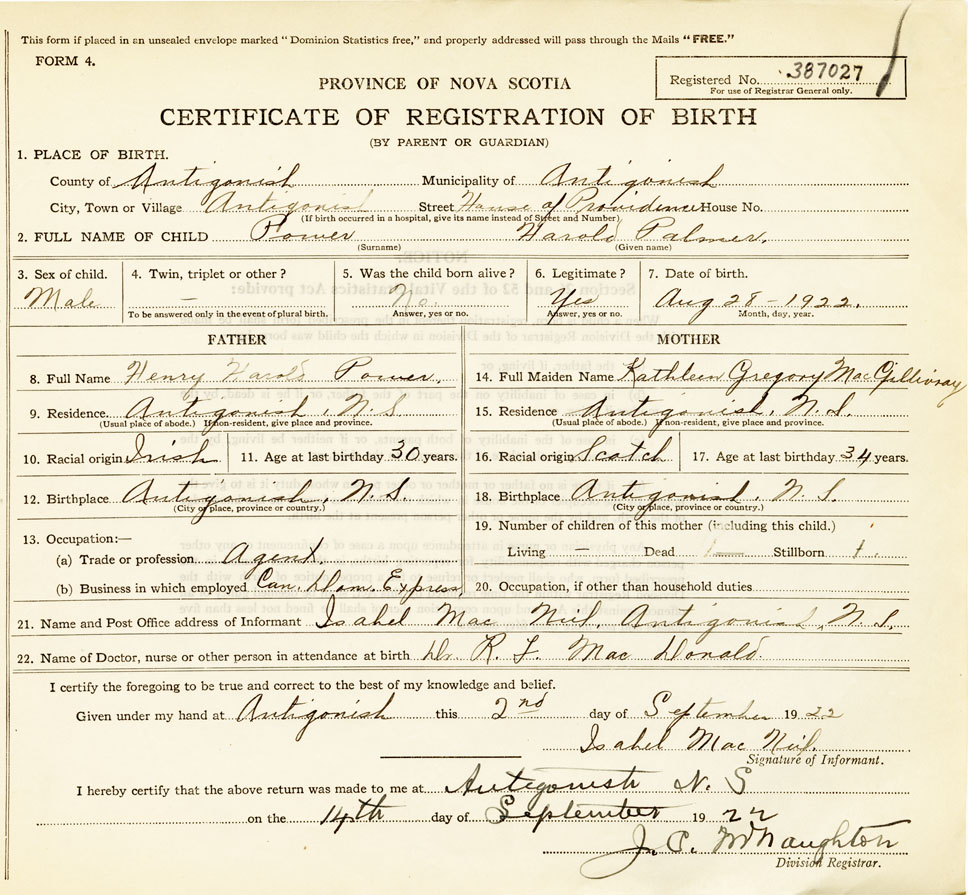 This form if placed in an unsealed envelope marked “Dominion Statistics free,” and properly addressed will pass through the Mails “FREE.”
FORM 4.
Registered No. 387027
For use of Registrar General only.
PROVINCE OF NOVA SCOTIA
CERTIFICATE OF REGISTRATION OF BIRTH
(BY PARENT OR GUARDIAN)
1. PLACE OF BIRTH.
County of Antigonish Municipality of Antigonish
City, Town or Village Antigonish Street House of Providence House No.
(If birth occurred in a hospital, give its name instead of Street and Number)
2. FULL NAME OF CHILD Power Harold Palmer.
(Surname) (Given name)
3. Sex of child. 4. Twin, triplet or other? 5. Was the child born alive? 6. Legitimate? 7. Date of birth.
Male — No. Yes Aug 28 - 1922.
To be answered only in the event of plural birth. Answer, yes or no. Answer, yes or no. Month, day, year.
FATHER MOTHER
8. Full Name Henry Harold Power. 14. Full Maiden Name Kathleen Gregory MacGillivray
9. Residence. Antigonish, N.S. 15. Residence Antigonish, N.S.
(Usual place of abode.) If non-resident, give place and province. (Usual place of abode.) If non-resident, give place and province.
10. Racial origin Irish 11. Age at last birthday 30 years. 16. Racial origin Scotch 17. Age at last birthday 34 years.
12. Birthplace Antigonish, N.S. 18. Birthplace Antigonish, N.S.
(City or place, province or country.) (City or place, province or country.)
13. Occupation:— 19. Number of children of this mother (including this child.)
(a) Trade or profession Agent. Living — Dead — Stillborn 1.
(b) Business in which employed Can. Dom. Express 20. Occupation, if other than household duties
21. Name and Post Office address of Informant Isabel Mac Neil, Antigonish, N.S.
22. Name of Doctor, nurse or other person in attendance at birth Dr. R. F. Mac Donald.
I certify the foregoing to be true and correct to the best of my knowledge and belief.
Given under my hand at Antigonish this 2nd day of September 1922
Isabel Mac Neil.
Signature of Informant.
I hereby certify that the above return was made to me at Antigonish N. S
on the 14th day of September 1922
J. C. McNaughton
Division Registrar.